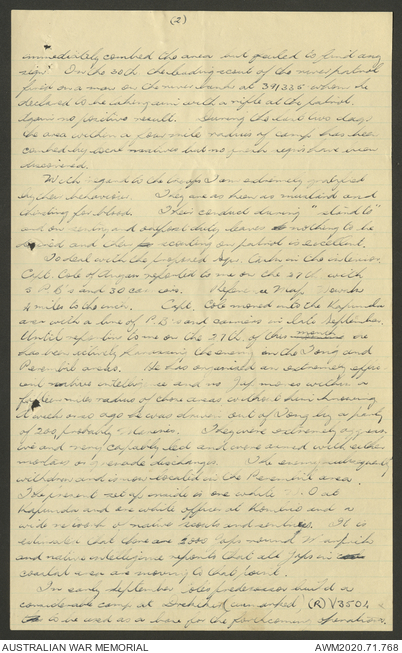 (2)
immediately combed the area and failed to find any
sign. On the 30th the leading scout of the river patrol
fired on a man on the river bank at 391335 whom he
declared to be taking aim with a rifle at the patrol.
Again no positive result. During the last two days
the area within a few mile radius of camp has been
combed by local natives but no fresh signs have been
observed.
With regard to the troops I am extremely gratified
by their behaviour. They are as keen as mustard and
thirsting for blood. Their conduct during "stand to"
and on sentry and outpost duty leaves nothing to be
desired and their scouting on patrol is excellent.
To deal with the proposed in the interior.
Capt. Cole of Angau reported to me on the 27th with
5 P.B's and 30 carriers. Reference Map
miles to the inch. Capt. Cole moved into the
area with a line of P.B's and carriers in late September.
Until reporting to me on the 27th of this month he
has been actively harassing the enemy in the and
areas. He has organised an extremely
native intelligence and no Jap moves within a
mile radius of those areas without him knowing
it. weeks ago he was driven out of by a party
of 200, probably Marines. They were extremely
and very capably led and were armed with either
mortars or grenade dischargers. The enemy subsequently
withdrew and is now located in the area.
The present set up inside is one white at
and one white officer at and a
wide network of native scouts and sentries. It is
estimated that there are 2000 Japs around
and native intelligence reports that all Japs in
coastal area are moving to that point.
In early September Coles predecessor build a
considerable camp at (unmarked) (R) V3504
to be used as a base for the forthcoming operations.
AUSTRALIAN WAR MEMORIAL
AWM2020.71.768